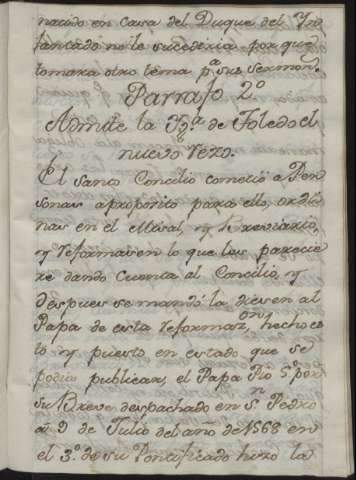 nacido en Casa del Duque del Yn
fantado no le sucederia por que
tomara otro tema p.ª sus Sermon.s
Parrafo 2.º
Admite la Yg.ª de Toledo el
nuevo rezo.
El Santo Concilio cometió a Per
sonas aproposito para ello, ordi
nas en el Misal, y Breviario,
y reformasen lo que les parecie
re dando cuenta al Concilio, y
despues se mandó la diesen al
Papa de esta reformaz.on, hecho es
to y puesto en estado que se
podia publicar, el Papa Pio 5.º por
su Breve despachado en S.n Pedro
a 9 de Julio del año de 1568 en
el 3.º de su Pontificado hizo la